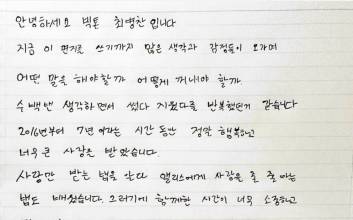 안녕하세요 빅톤 최병찬입니다
지금 이 편지를 쓰기까지 많은 생각과 감정들이 오가며
어떤 말을 해야할까 어떻게 꺼내야 할까
수백번 생각하면서 썼다 지웠다를 반복했던거 같습니다
2016년부터 7년 이라는 시간 동안 정말 행복하고
너무 큰 사랑을 받았습니다.
사랑만 받는 법을 알다 앨리스에게 사랑을 줄 줄 아는
법도 배웠습니다 그러기에 함께한 시간이 너무 소중하고